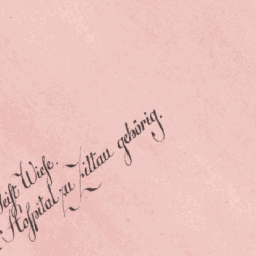 Wiese.
Hospital zu Zittau gehörig.